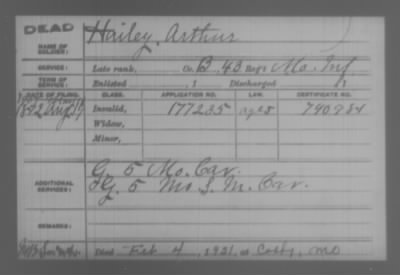 DEAD
NAME OF SOLDIER: Hailey, Arthur
SERVICE: Late rank, Co. B, 43 Reg't Mo. Inf.
TERM OF SERVICE: Enlisted , 1 Discharged , 1
DATE OF FILING. CLASS. APPLICATION NO. LAW. CERTIFICATE NO.
1892 Aug Invalid, 177235 790984
Widow,
Minor,
ADDITIONAL SERVICES: G. 5 Mo. Cav.
& G. 5 Mo. S. M. Cav.
REMARKS:
Died Feb 4, 1921, at Cosby, Mo